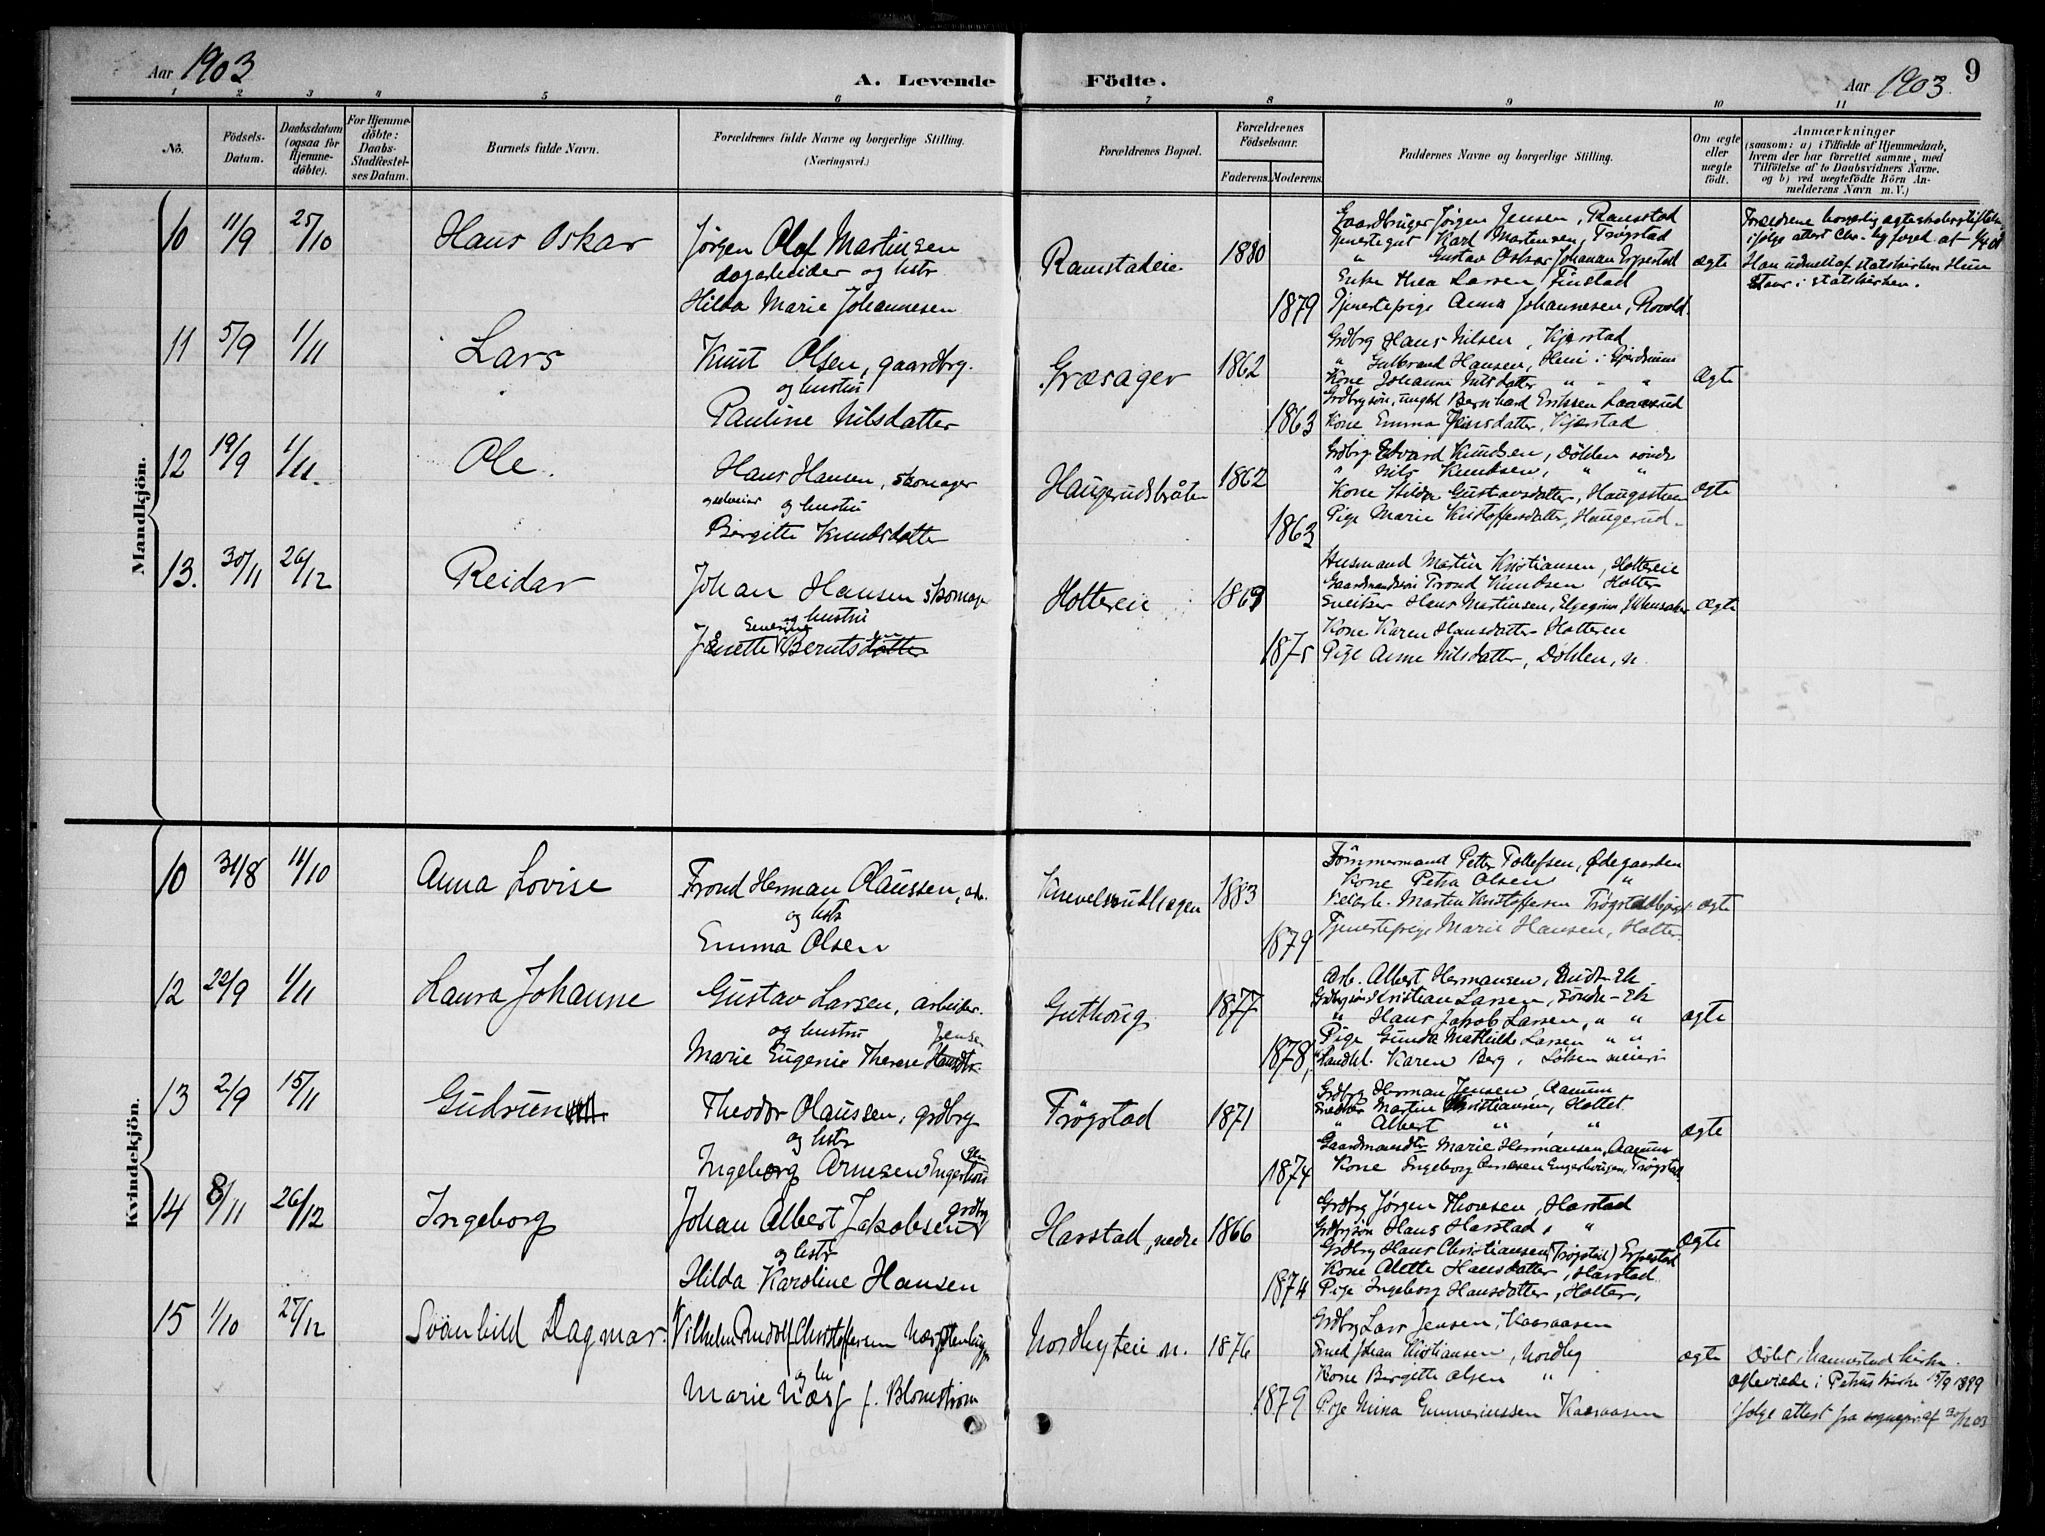 Aar 1903
A. Levende
Födte.
Aar 1903.
9
1 2 3 4 5 6 7 8 9 10 11
No.
Födsels-
Datum.
Daabsdatum
(ogsaa for
Hjemme-
döbte).
For Hjemme-
döbte:
Daabs-
Stadfæstel-
ses Datum.
Barnets fulde Navn.
Forældrenes fulde Navne og borgerlige Stilling.
(Næringsvei.)
Forældrenes Bopæl.
Forældrenes
Födselsaar.
Faderens. Moderens.
Faddernes Navne og borgerlige Stilling.
Om ægte
eller
uægte
födt.
Anmærkninger
(saasom: a) i Tilfælde af Hjemmedaab,
hvem der har forrettet samme, med
Tilföielse af to Daabsvidners Navne.
og b) ved uægtefödte Börn An-
melderens Navn m. V.)
Mandkjön.
10 11/9 25/10 Hans Oskar
Jørgen Olaf Martinsen
dagarbeider og hstr
Hilda Marie Johannesen
Ramstadeie 1880
1879
Gaardbruger Jørgen Jensen, Ramstad
Tjenestegut Karl Martensen, Trøgstad
" Gustav Oskar Johanan Erpestad
Enke Thea Larsen, Finstad
Tjenestepige Anna Johannesen, Rovold
ægte
Forældrene borgerlig
ifølge attest
Han udmeldt af statskirken Hun
staar i statskirken.
11 5/9 1/11 Lars
Knut Olsen, gaardbrg.
og hustru
Pauline Nilsdatter
Græsager 1862
1863
Grdbrg Hans Nilsen, Kjærstad
" Gulbrand Hansen, i Gjerdrum
Kone Johanne Nilsdatter " " "
Grdbrgsøn, ungkl Bernhard Erikssen
Kone Emma Hansdatter, Kjærstad
Ægte
12 19/9 1/11. Ole.
Hans Hansen, skomager
og hustru
Birgitte Knudsdatter
Haugerudsbråten 1862
1863
Grdbrg Edvard Knudsen, Döhlen söndre
" Nils Knudsen, " "
Kone Hilda Gustavsdatter, Haugsteen
Pige Marie Kristoffersdatter, Haugerud
ægte
13. 30/11 26/12 Reidar
Johan Hansen skomager
og hustru
Severine
Jenette Berntsdatter
Holtereie 1869
1875
Husmand Martin Kristiansen, Holtereie
Gaardmandssøn Trond Knudsen Holter
Snekker Hans Martinsen,
Kone Karen Hansdatter Holtereie
Pige Anne Nilsdatter, Döhlen, n.
Ægte
Kvindekjön.
10 31/8 11/10 Anna Lovise
Trond Herman Olaussen, arb.
og hstr
Emma Olsen
Knevelsrudhagen 1883
1879
Tömmermand Petter Tollefsen, Ødegaarden
Kone Petra Olsen "
Martin Kristoffersen
Tjenestepige Marie Hansen, Holter.
ægte
12 22/9 1/11 Laura Johanne
Gustav Larsen, arbeider.
og hustru Jensen
Marie Eugenie Therese
Guthoug 1877
1878,
Arb. Albert Hermansen, Eik
Grdbrgsøn Kristian Larsen, Söndre-Ek
" Hans Jakob Larsen, " "
Pige Gunda Mathilde Larsen " "
Karen Berg, meieri
ægte
13 2/9 15/11 Gudrun
Theodor Olaussen, grdbrg
og hstr
Ingeborg Arnesen
Trögstad 1871
1874
Grdbrg Herman Jensen, Aamum
Snekker Martin Christiansen, Holter
" Albert " "
Gaardmandsdtr Marie Hermansen, Aamum
Kone Ingeborg Arnesen Trögstad
ægte
14 8/11 26/12 Ingeborg
Johan Albert Jakobsen grdbrg
og hstr
Hilda Karoline Hansen
Harstad, nedre 1866
1874
Grdbrg Jørgen Thoresen, Harstad
Grdbrgsøn Hans Harstad, "
Grdbrg Hans Christiansen (Trögstad) Erpestad
Kone Alette Hansdatter, Harstad.
Pige Ingeborg Hansdatter, Holter,
Ægte
15 1/10 27/12 Svanhild Dagmar.
Vilhelm Rudolf Christoffersen Næss stenhugger
og hu
Marie Næss f. Blomström
Nordbyeie n. 1876
1879
Grdbrg Lars Jensen, Kaaraasen
Smed Johan Kristiansen, Nordby
Kone Birgitte Olsen "
Pige Mina Gunneriussen Kaaraasen
ægte
Döbt i Nannestad kirke.
ægteviede i Petrus kirke 15/9 1899
ifølge attest fra sognepr. af 30/12 03